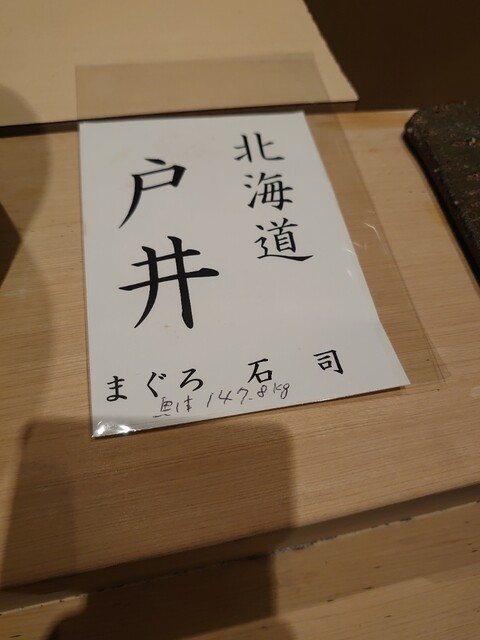 北海道
戸井
まぐろ 石司
魚体 147.8kg